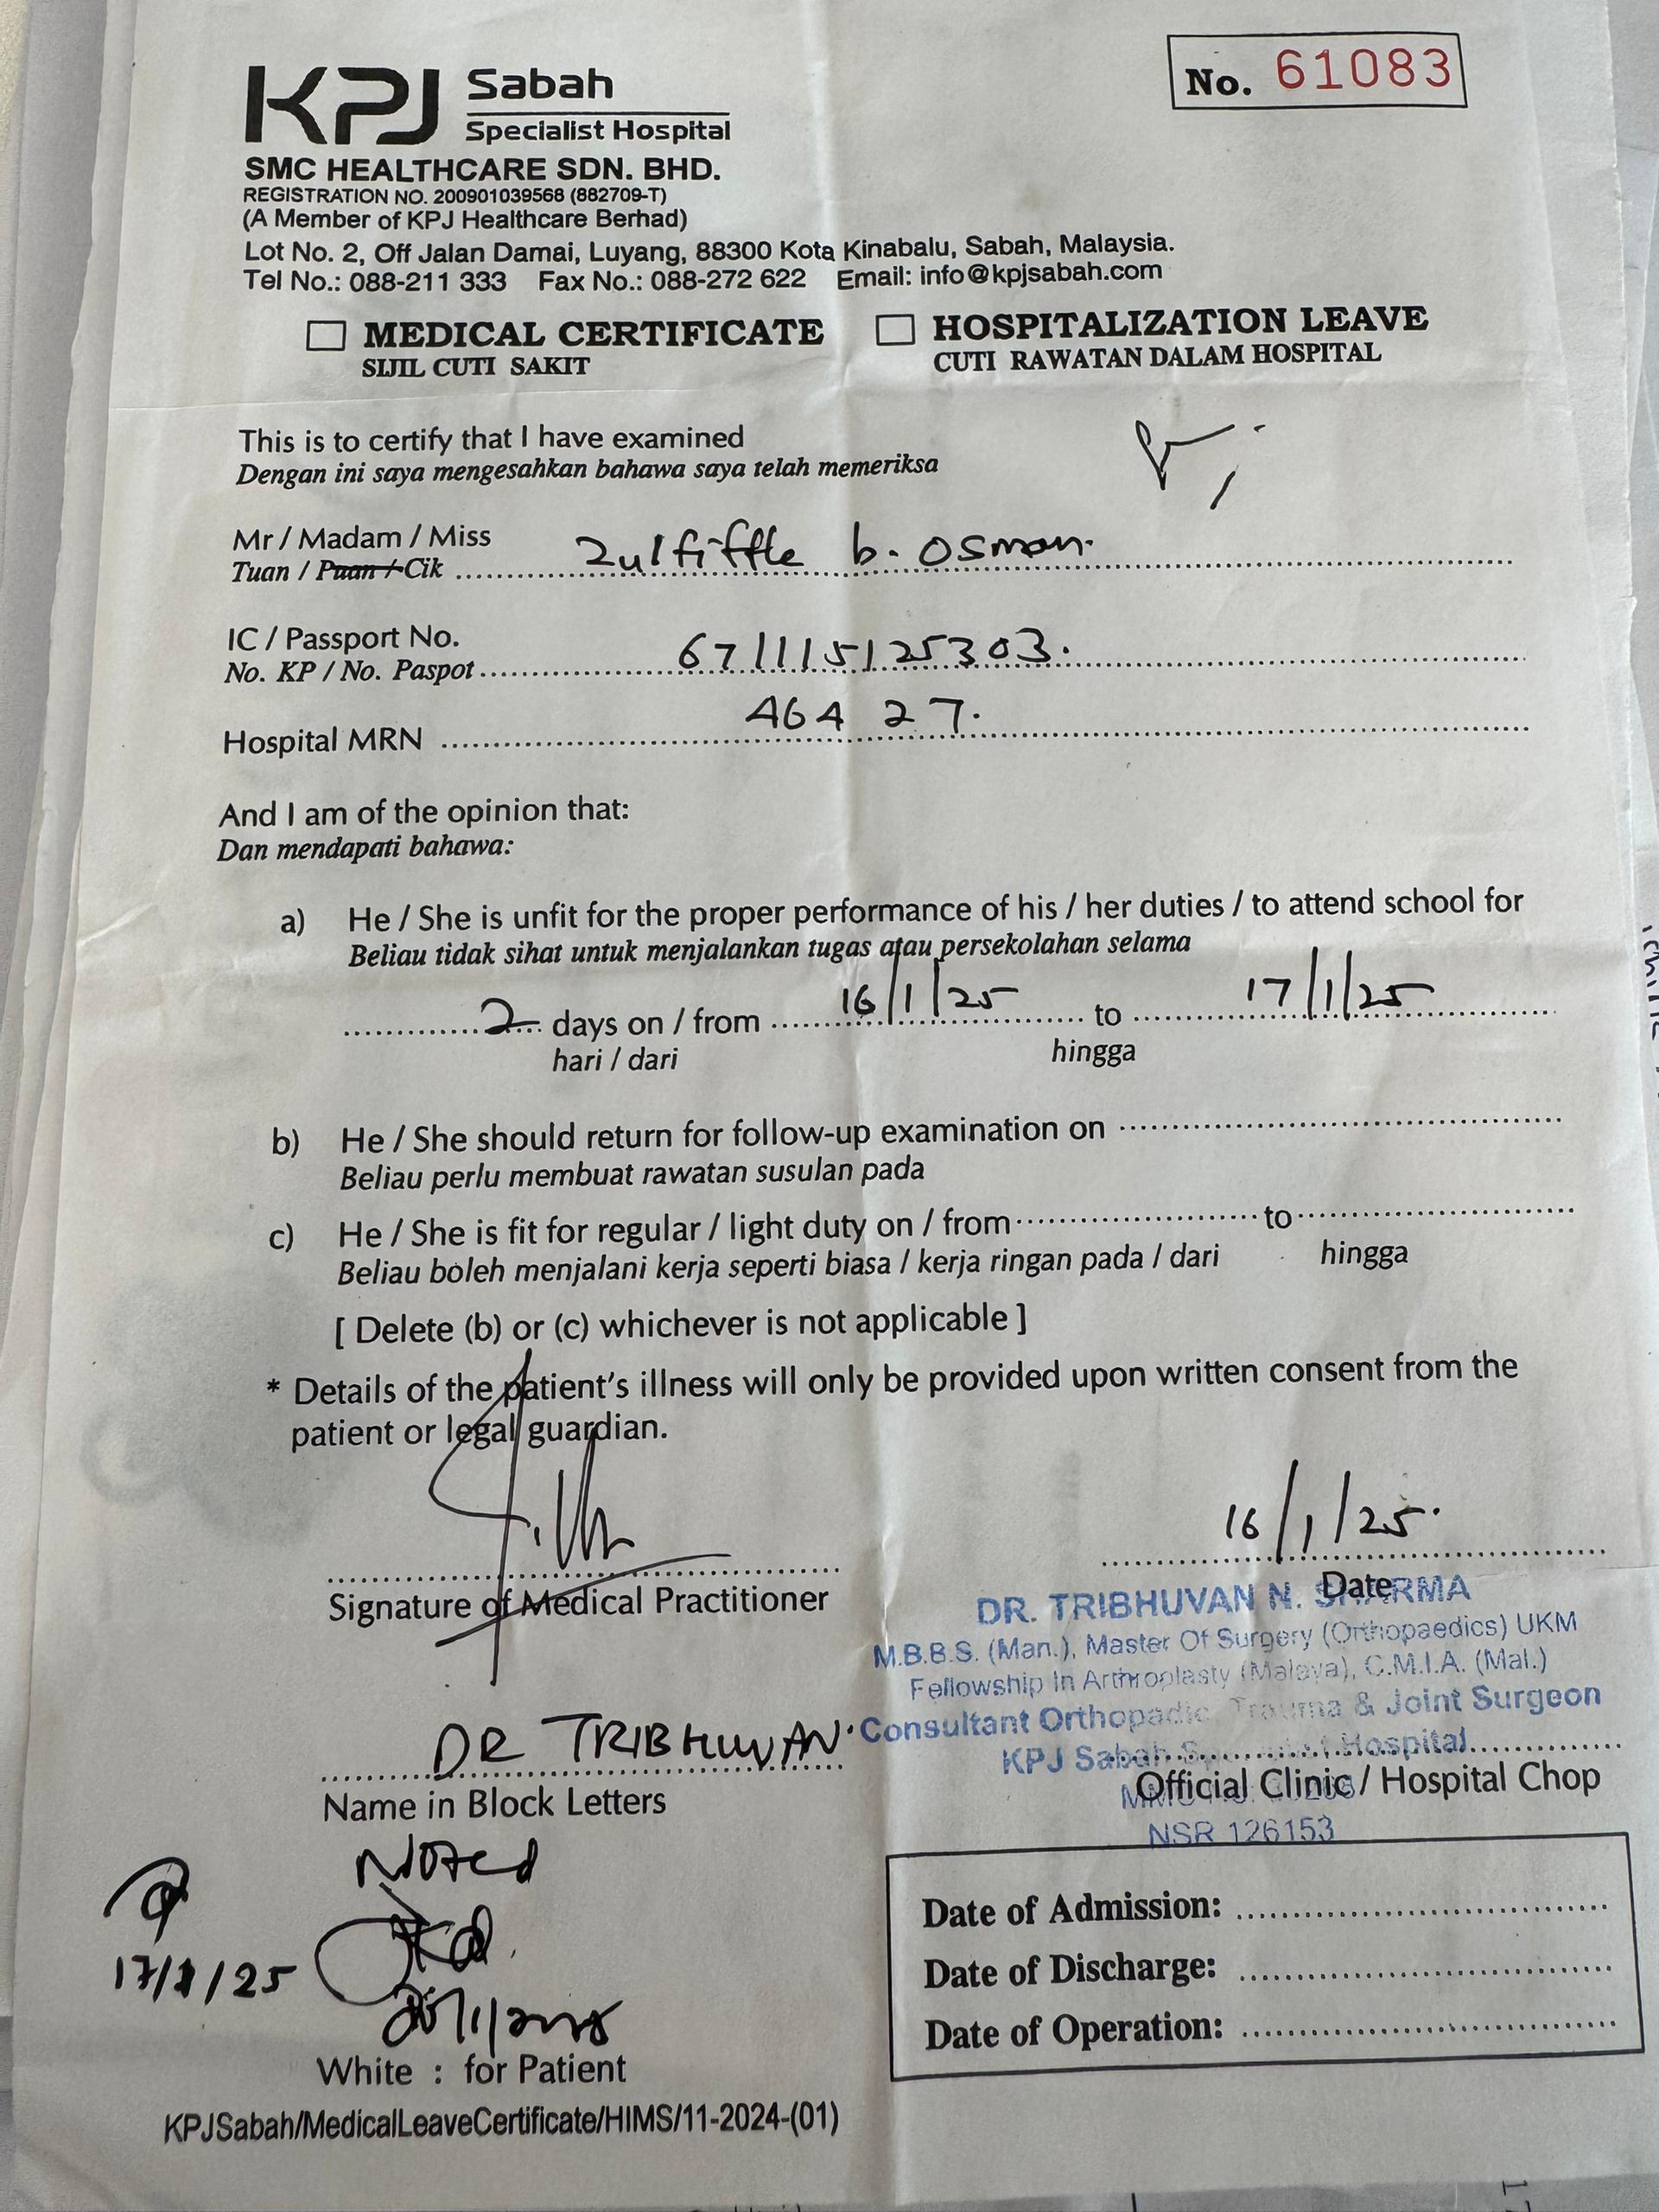 KPJ Sabah
Specialist Hospital
No. 61083
SMC HEALTHCARE SDN. BHD.
REGISTRATION NO. 200901039568 (882709-T)
(A Member of KPJ Healthcare Berhad)
Lot No. 2, Off Jalan Damai, Luyang, 88300 Kota Kinabalu, Sabah, Malaysia.
Tel No.: 088-211 333 Fax No.: 088-272 622 Email: info@kpjsabah.com
MEDICAL CERTIFICATE
SIJIL CUTI SAKIT
HOSPITALIZATION LEAVE
CUTI RAWATAN DALAM HOSPITAL
This is to certify that I have examined
Dengan ini saya mengesahkan bahawa saya telah memeriksa
Mr / Madam / Miss
Tuan / Puan / Cik Zulfiffle b. Osman.
IC / Passport No.
No. KP / No. Paspot 671115125303.
Hospital MRN 46427.
And I am of the opinion that:
Dan mendapati bahawa:
a) He / She is unfit for the proper performance of his / her duties / to attend school for
Beliau tidak sihat untuk menjalankan tugas atau persekolahan selama
2 days on / from 16/1/25 to 17/1/25
hari / dari hingga
b) He / She should return for follow-up examination on
Beliau perlu membuat rawatan susulan pada
c) He / She is fit for regular / light duty on / from to
Beliau boleh menjalani kerja seperti biasa / kerja ringan pada / dari hingga
[ Delete (b) or (c) whichever is not applicable ]
* Details of the patient's illness will only be provided upon written consent from the
patient or legal guardian.
16/1/25.
Signature of Medical Practitioner
Date
DR. TRIBHUVAN N. SHARMA
M.B.B.S. (Man.), Master Of Surgery (Orthopaedics) UKM
Fellowship In Arthroplasty (Malaya), C.M.I.A. (Mal.)
Consultant Orthopadic, Trauma & Joint Surgeon
KPJ Sabah Specialist Hospital
NSR 126153
DR TRIBHUVAN.
Name in Block Letters
Official Clinic / Hospital Chop
Noted
17/1/25
Date of Admission:
Date of Discharge:
Date of Operation:
White : for Patient
KPJSabah/MedicalLeaveCertificate/HIMS/11-2024-(01)